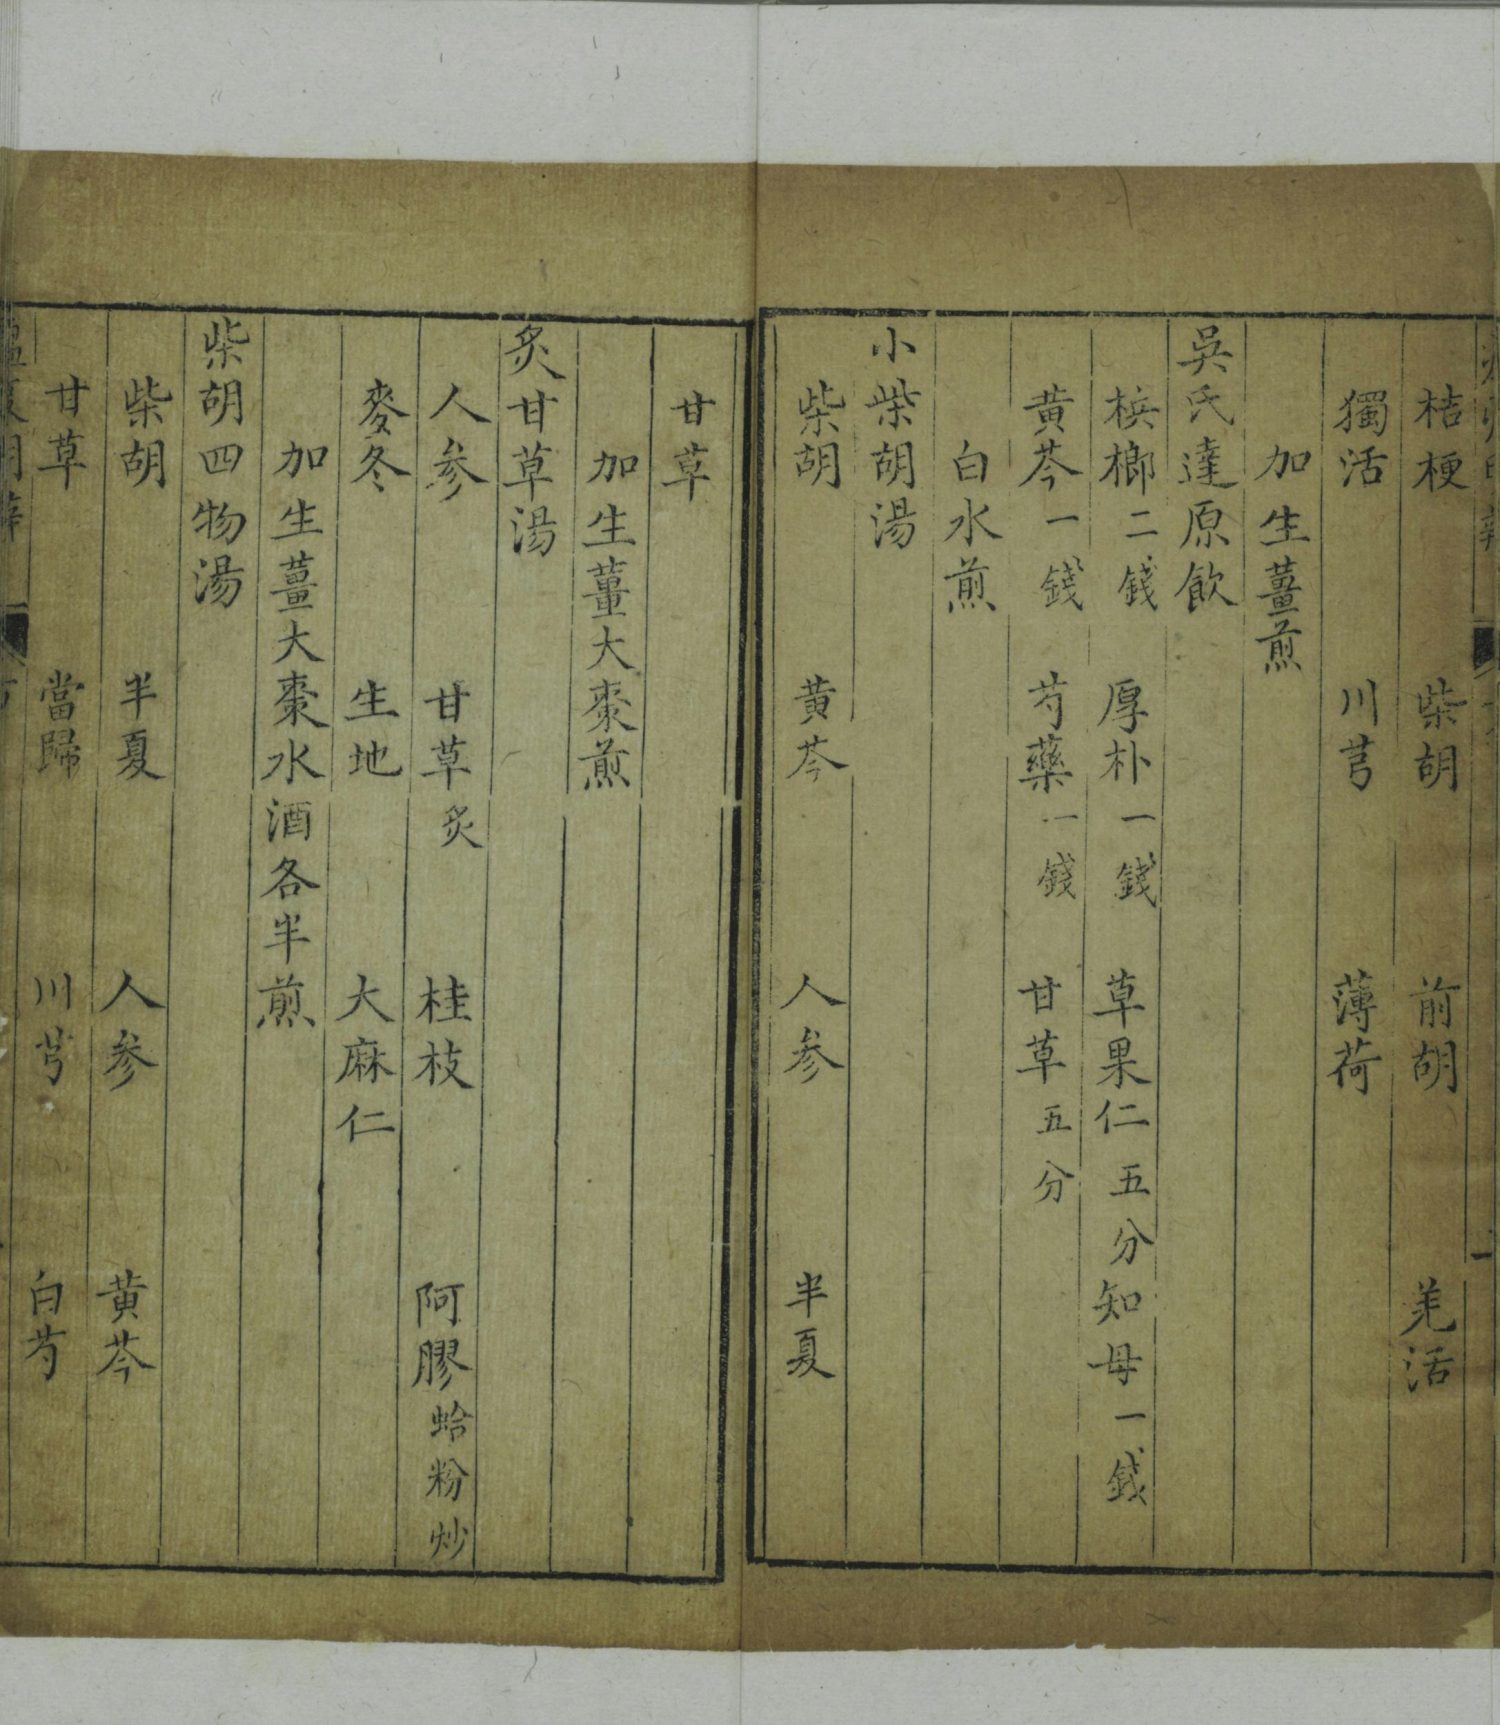 桔梗 柴胡 前胡 羌活
獨活 川芎 薄荷
加生薑煎
吳氏達原飲
梹榔二錢 厚朴一錢 草果仁五分 知母一錢
黄芩一錢 芍藥一錢 甘草五分
白水煎
小柴胡湯
柴胡 黄芩 人参 半夏
甘草
加生薑大棗煎
炙甘草湯
人参 甘草炙 桂枝 阿膠蛤粉炒
麥冬 生地 大麻仁
加生薑大棗水酒各半煎
柴胡四物湯
柴胡 半夏 人参 黄芩
甘草 當歸 川芎 白芍